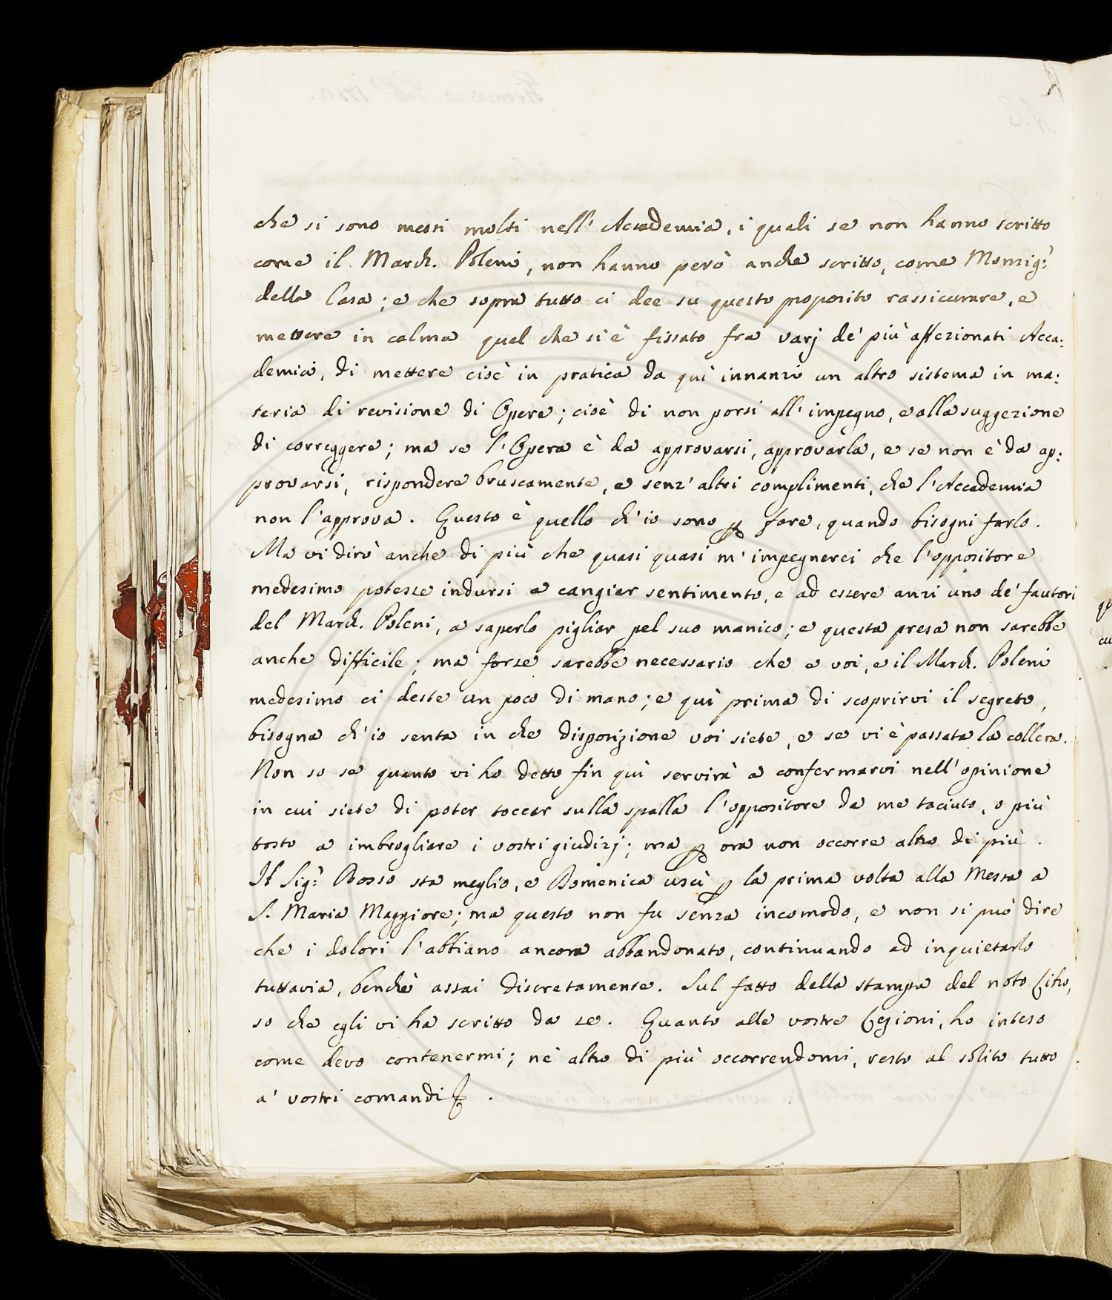 che si sono messi molti nell' Accademia, i quali se non hanno scritto
come il March. Poleni, non hanno però anche scritto, come Monsig.r
della Casa; e che sopra tutto ci dee su questo proposito rassicurare, e
mettere in calma quel che si è fissato fra varj de' più affezionati Acca:
demici, di mettere cioè in pratica da quì innanzi un altro sistema in ma:
teria di revisione di Opere; cioè di non porsi all' impegno, e alla suggezione
di correggere; ma se l'Opera è da approvarsi, approvarla, e se non è da ap:
provarsi, rispondere bruscamente, e senz' altri complimenti, che l'Accademia
non l'approva. Questo è quello ch' io sono p fare, quando bisogni farlo.
Ma vi dirò anche di più che quasi quasi m' impegnerei che l'oppositore
medesimo potesse indursi a cangiar sentimento, e ad essere anzi uno de' fautori
del March. Poleni, a saperlo pigliar pel suo manico; e questa presa non sarebbe
anche difficile; ma forse sarebbe necessario che e voi, e il March. Poleni
medesimo ci deste un poco di mano; e quì prima di scoprirvi il segreto,
bisogna ch' io senta in che disposizione voi siete, e se vi è passata la collera.
Non so se quanto vi ho detto fin quì servirà a confermarvi nell' opinione
in cui siete di poter toccar sulla spalla l'oppositore da me taciuto, o più
tosto a imbrogliare i vostri giudizj; ma p ora non occorre altro di più.
Il Sig.r Rosso sta meglio, e Domenica uscì p la prima volta alla Messa a
S. Maria Maggiore; ma questo non fu senza incomodo, e non si può dire
che i dolori l'abbiano ancora abbandonato, continuando ad inquietarlo
tuttavia, benchè assai discretamente. Sul fatto della stampa del noto Libro,
so che egli vi ha scritto da se. Quanto alle vostre Lezioni, ho inteso
come devo contenermi; nè altro di più occorrendomi, resto al solito tutto
a' vostri comandi